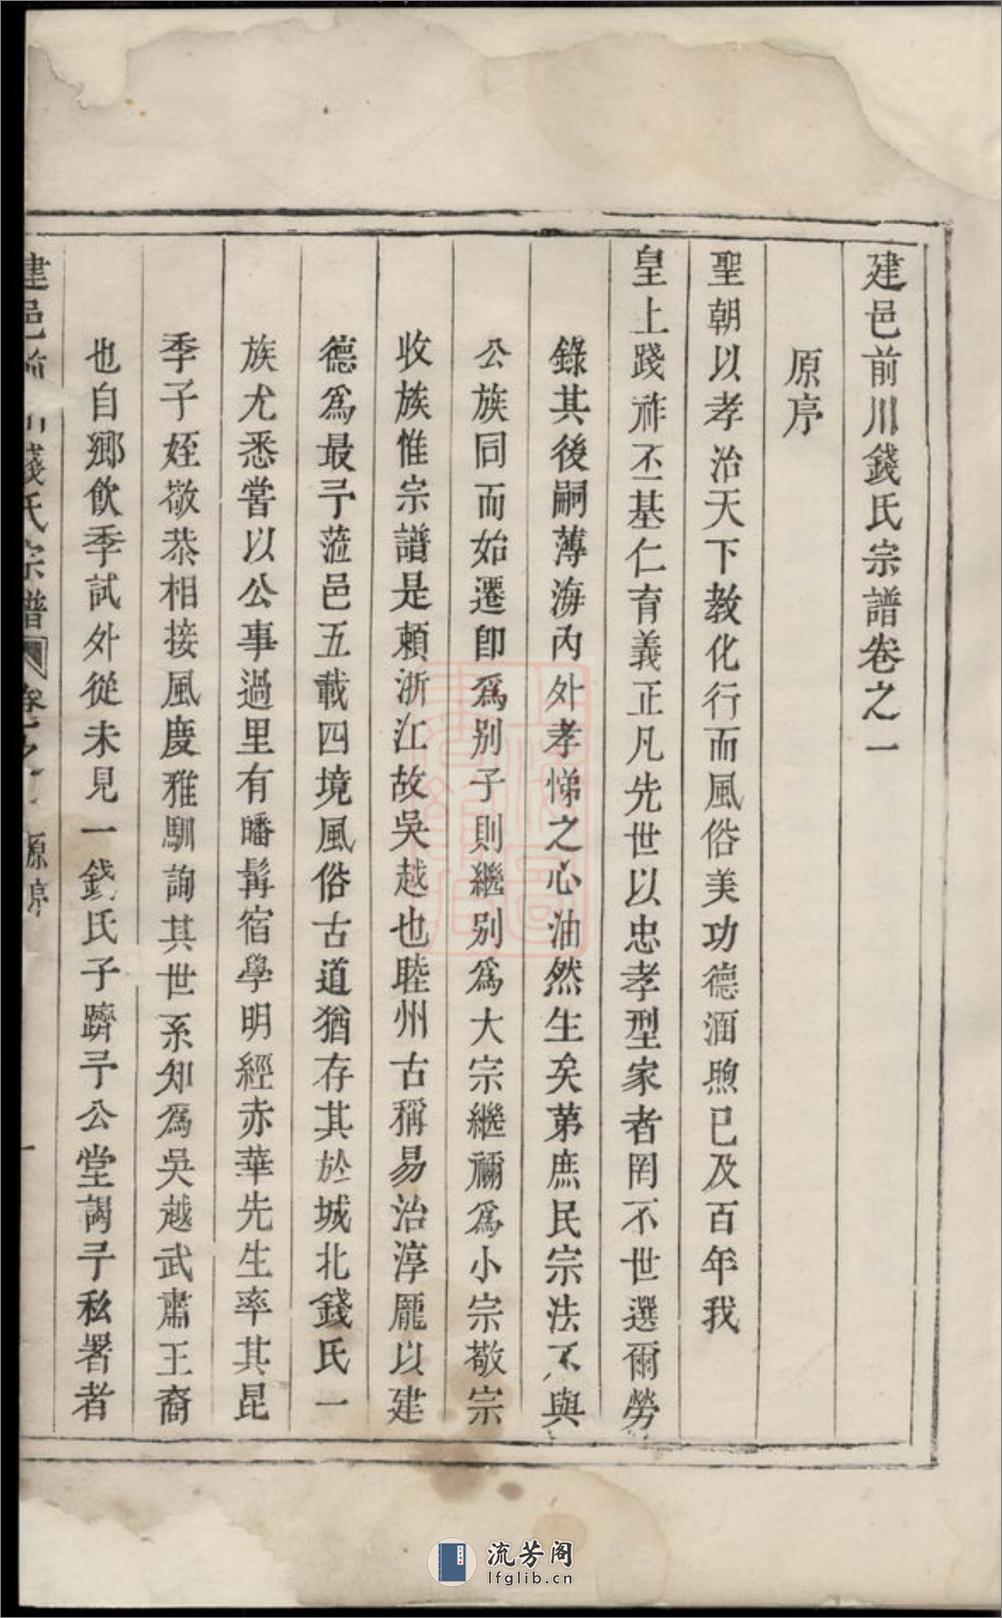 建邑前川錢氏宗譜卷之一
原序
聖朝以孝治天下教化行而風俗美功德涵煦已及百年我
皇上踐祚丕基仁育義正凡先世以忠孝型家者罔不世選爾勞
錄其後嗣薄海內外孝悌之心油然生矣第庶民宗法不與
公族同而始遷卽爲别子則繼别爲大宗繼禰爲小宗敬宗
收族惟宗譜是賴浙江故吳越也睦州古稱易治淳龐以建
德爲最予蒞邑五載四境風俗古道猶存其於城北錢氏一
族尤悉嘗以公事過里有皤髯宿學明經赤華先生率其昆
季子姪敬恭相接風度雅馴詢其世系知爲吳越武肅王裔
也自鄉飲季試外從未見一錢氏子躋予公堂謁予私署者
建邑前川錢氏宗譜 卷之一 原序 一
流芳阁
lfglib.cn